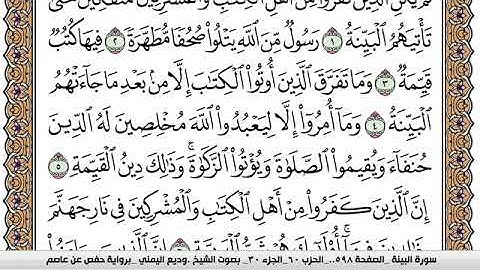 تَأْتِيَهُمُ ٱلْبَيِّنَةُ ١ رَسُولٌ مِّنَ ٱللَّهِ يَتْلُوا۟ صُحُفًا مُّطَهَّرَةً ٢ فِيهَا كُتُبٌ
قَيِّمَةٌ ٣ وَمَا تَفَرَّقَ ٱلَّذِينَ أُوتُوا۟ ٱلْكِتَٰبَ إِلَّا مِنۢ بَعْدِ مَا جَآءَتْهُمُ
ٱلْبَيِّنَةُ ٤ وَمَآ أُمِرُوٓا۟ إِلَّا لِيَعْبُدُوا۟ ٱللَّهَ مُخْلِصِينَ لَهُ ٱلدِّينَ
حُنَفَآءَ وَيُقِيمُوا۟ ٱلصَّلَوٰةَ وَيُؤْتُوا۟ ٱلزَّكَوٰةَ ۚ وَذَٰلِكَ دِينُ ٱلْقَيِّمَةِ ٥
إِنَّ ٱلَّذِينَ كَفَرُوا۟ مِنْ أَهْلِ ٱلْكِتَٰبِ وَٱلْمُشْرِكِينَ فِى نَارِ جَهَنَّمَ
سورة البينة _الصفحة ٥٩٨_.. الحزب ٦٠_ الجزء ٣٠_ بصوت الشيخ _وديع اليمني _برواية حفص عن عاصم